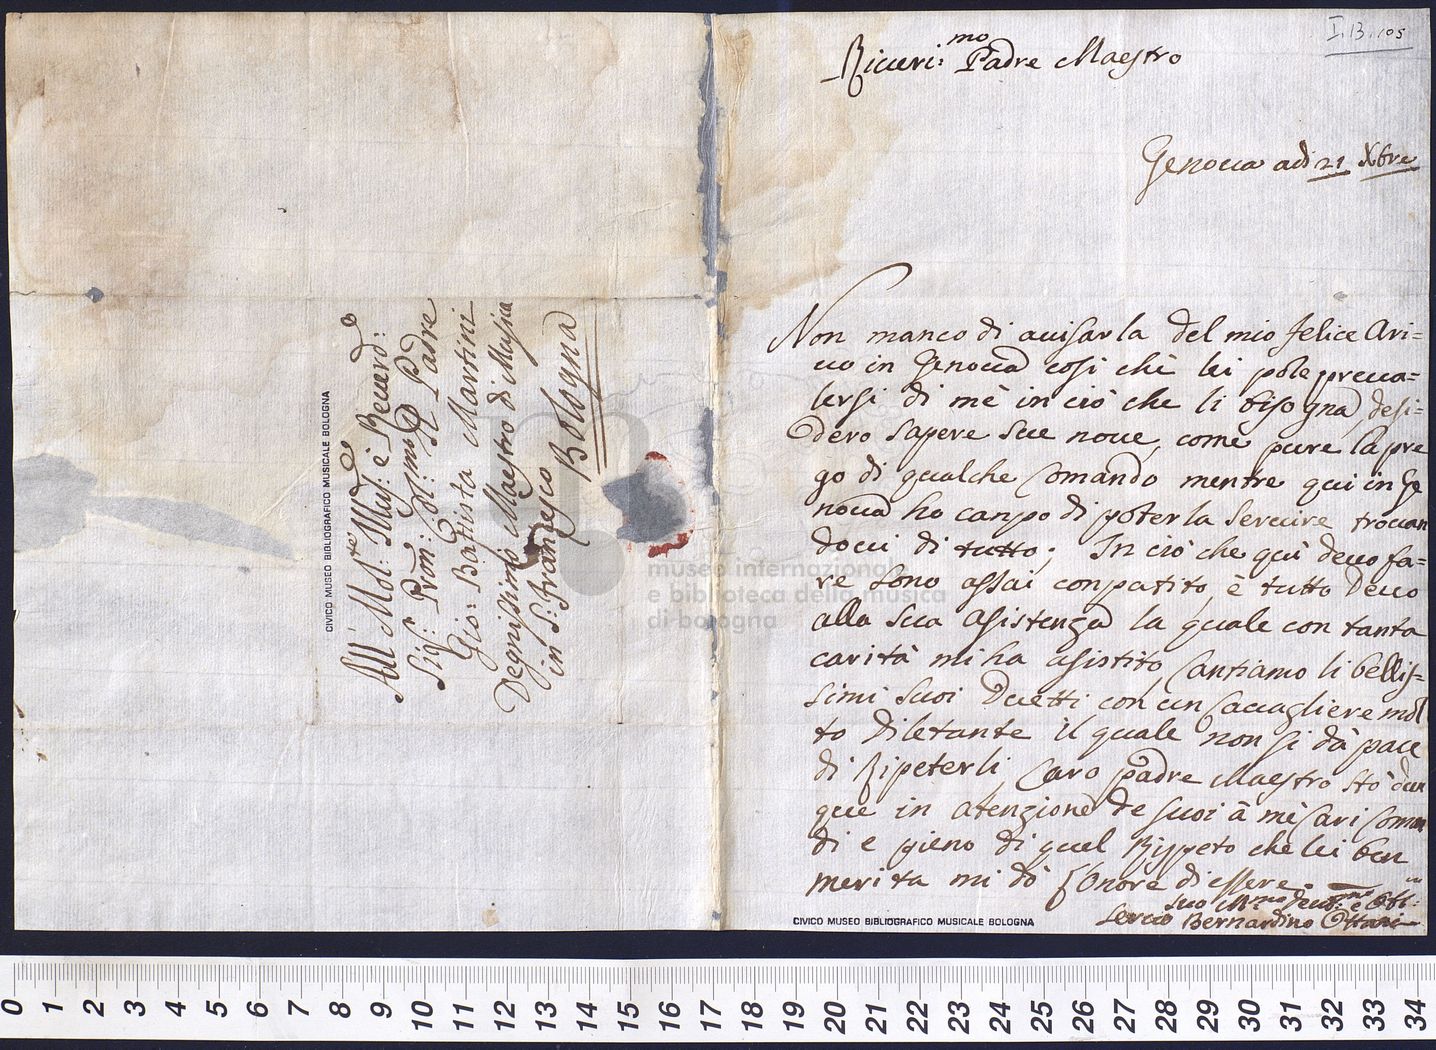 I.13.105
Riceri:mo Padre Maestro
Genova adi 21 Xbre
Non manco di avisarla del mio felice Ari=
vo in Genova cosi chè lei pole preva=
lersi di mè in ciò che li bisogna, desi=
dero sapere sue nove, comè pure la pre
go di qualche Comando mentre qui in Ge
nova ho canpo di poterla Servire trovan
doci di tutto; In ciò che qui devo fa=
re sono assai conpatito, è tutto Devo
alla sua Asistenza la quale con tanta
carità mi ha asistito, Cantiamo li bellis=
simi suoi Duetti con un Cavagliere mol
to Diletante il quale non si dà pace
di Ripeterli Caro Padre Maestro stò dun
que in atenzione de suoi à mè Cari Coman
di e pieno di quel Rispeto che lei ben
merita mi dò l'Onore di essere
Suo
Servo Bernardino Ottani
All' Molto Ill: Mus: è Reverd:
Sig: Pron: Ol:mo Il Padre
Gio: Battista Martini
Degnissimo Maestro di Musica
in S: Francesco
Bologna
CIVICO MUSEO BIBLIOGRAFICO MUSICALE BOLOGNA
CIVICO MUSEO BIBLIOGRAFICO MUSICALE BOLOGNA
museo internazionale
e biblioteca della musica
di bologna
0 1 2 3 4 5 6 7 8 9 10 11 12 13 14 15 16 17 18 19 20 21 22 23 24 25 26 27 28 29 30 31 32 33 34